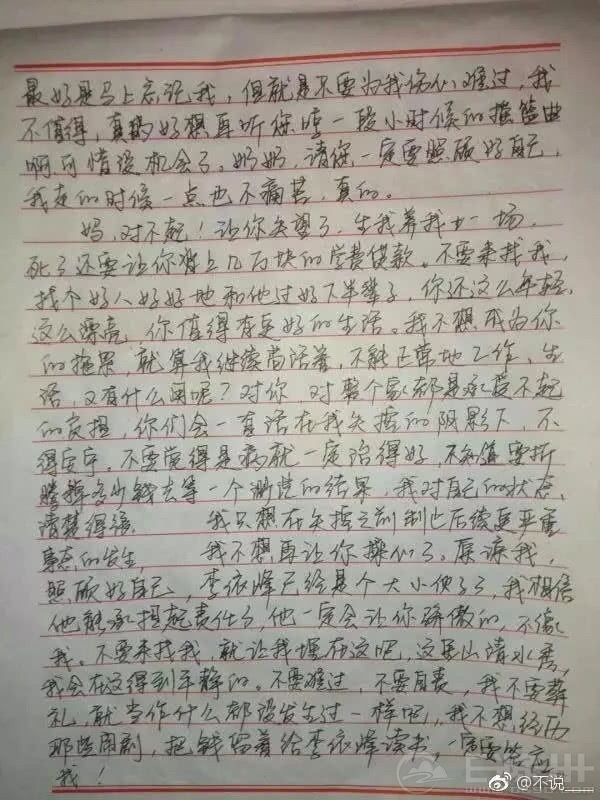 最好是马上忘记我，但就是不要为我伤心难过，我
不值得，真的好想再听您哼一段小时候的摇篮曲
啊可惜没机会了。奶奶，请您一定要照顾好自己，
我走的时候一点也不痛苦，真的。
妈，对不起！让你失望了，生我养我廿一场，
死了还要让你难上几万块的学费贷款。不要来找我，
找个好人好好地和他过好下半辈子，你还这么年轻，
这么漂亮，你值得有更好的生活。我不想成为你
的拖累，就算我继续苟活着，不能正常地工作、生
活，又有什么用呢？对你，对整个家都是承受不起
的负担，你们会一直活在我失控的阴影下，不
得安宁。不要觉得是病就一定治得好，不知道要折
腾掉多少钱去等一个渺茫的结果，我对自己的状态
清楚得很 我只想在失控之前制止后续更严重
事态的发生， 我不想再让你操心了，原谅我，
照顾好自己，李依峰已经是个大小伙子了，我相信
他能承担起责任了，他一定会让你骄傲的，不像
我。不要来找我，就让我埋在这吧，这里山清水秀，
我会在这得到平静的。不要难过，不要自责，我不要葬
礼，就当作什么都没发生过一样吧，我不想经历
那些闹剧，把钱留着给李依峰读书，一定要答应
我！
@不说___